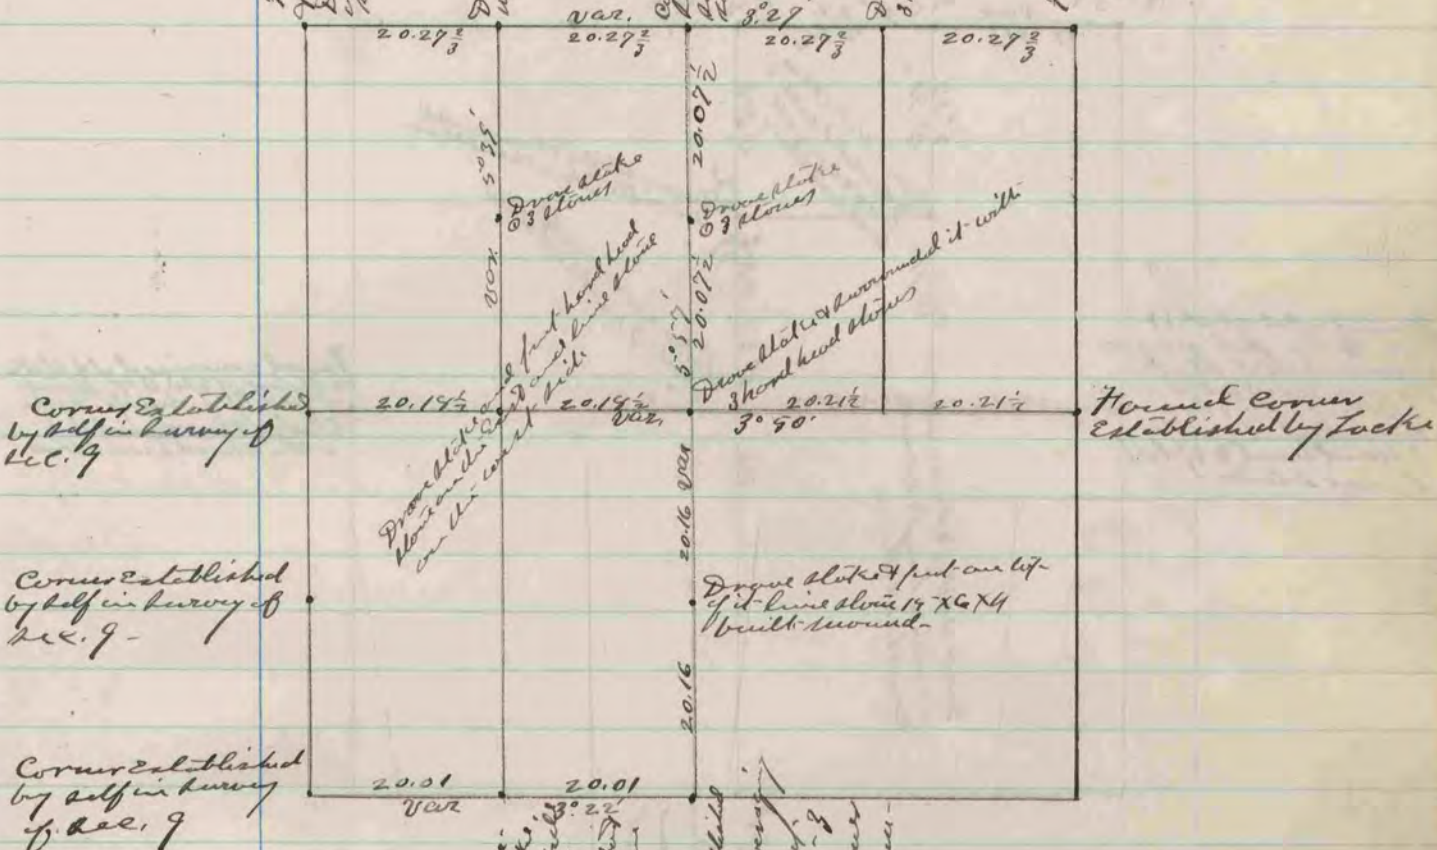 var. 3°27'
20.27 2/3 20.27 2/3 20.27 2/3 20.27 2/3
5°35'
var.
Drove stake
& 3 stones
20.07 1/2
Drove stake
& 3 stones
20.07 1/2
5°57'
Drove stake and put hard head
stone on the East and lime stone
on the west side
Drove stake & surrounded it with
3 hard head stones
Corner Established
by self in survey of
sec. 9
20.19 1/2 20.19 1/2 20.21 1/2 20.21 1/2
var. 3°50'
Found Corner
Established by Locke
20.16 var
Corner Established
by self in survey of
sec. 9-
Drove stake & put on top
of it lime stone X6X4
built mound-
20.16
Corner Established
by self in survey
of sec. 9
20.01 20.01
var 3°22'